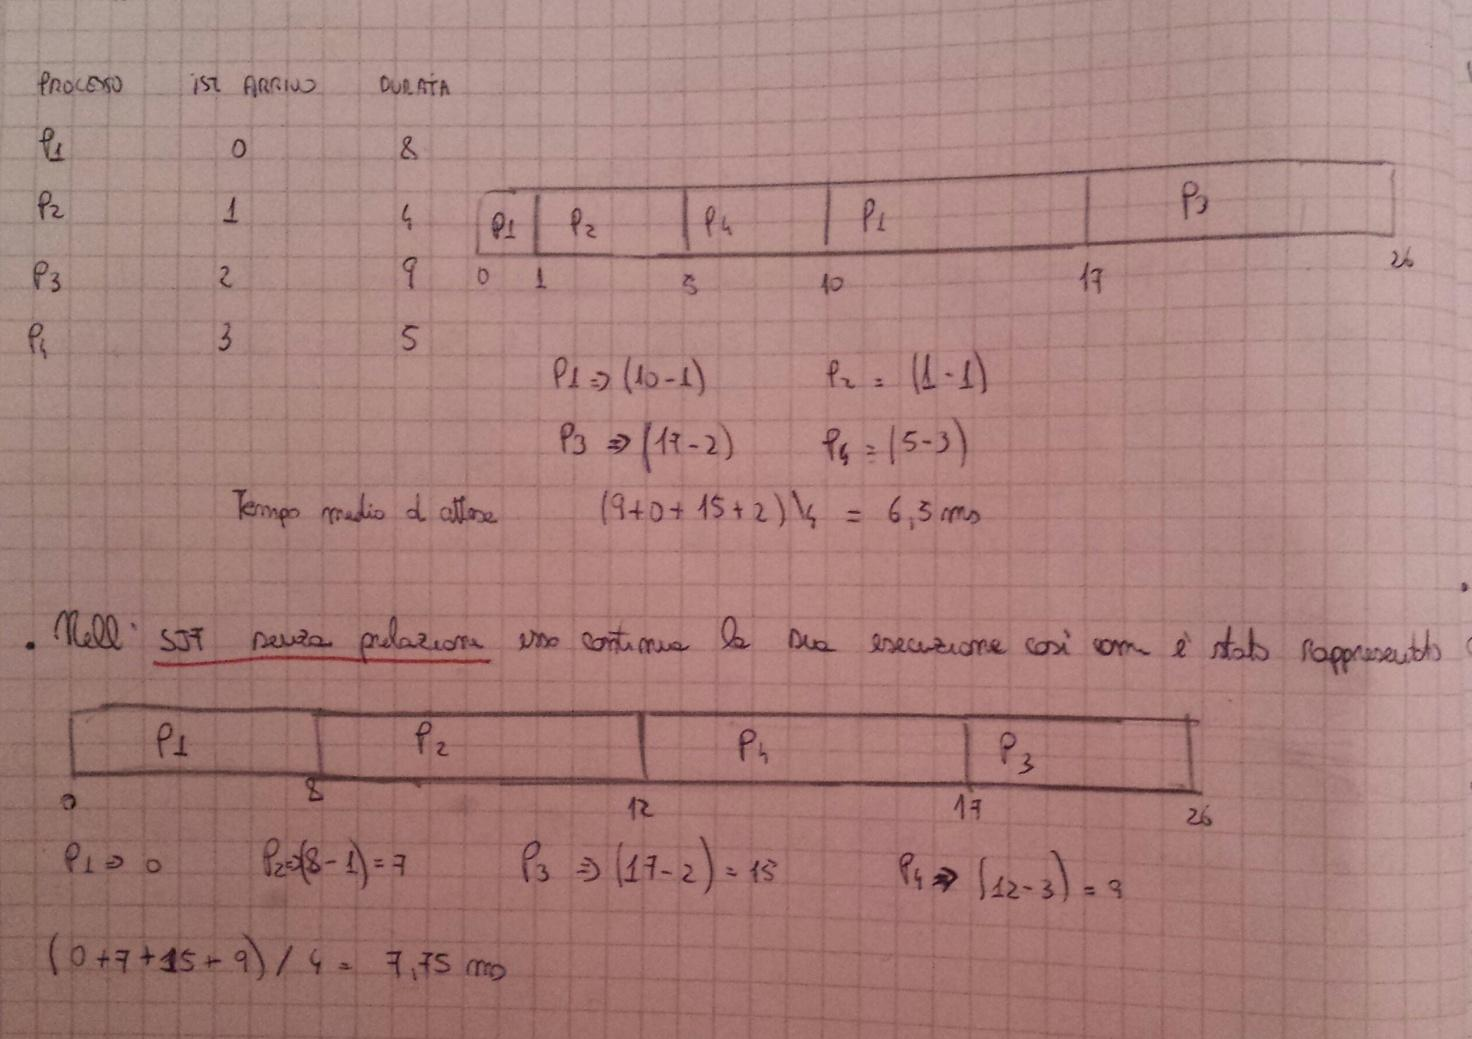 PROCESSO IST ARRIVO DURATA
P1 0 8
P2 1 4
P3 2 9
P4 3 5
P1 P2 P4 P1 P3
0 1 5 10 17 26
P1 => (10-1) P2 = (1-1)
P3 => (17-2) P4 = (5-3)
Tempo medio d attesa (9+0+15+2)\4 = 6,5 ms
. Nell' SJF senza prelazione esso continua la sua esecuzione così com è stato rappresentato
P1 P2 P4 P3
0 8 12 17 26
P1 => 0 P2=>(8-1)=7 P3 => (17-2)=15 P4 => (12-3)=9
(0+7+15+9)/4 = 7,75 ms